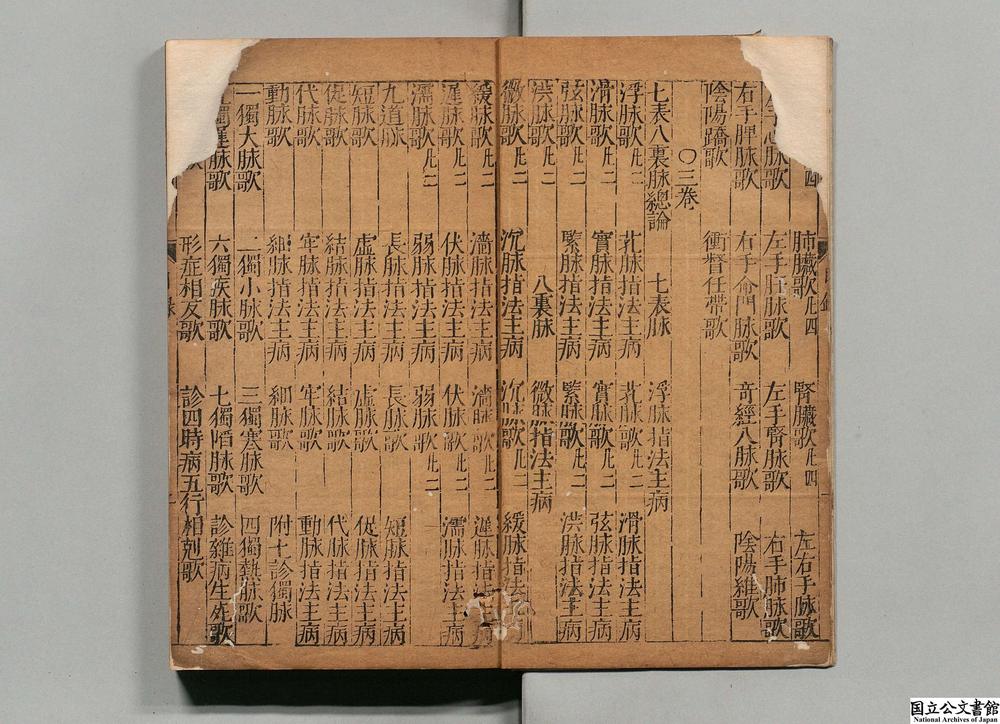 四 肺臟歌凡四 腎臟歌凡四 左右手脉歌
心脉歌 左手肝脉歌 左手腎脉歌 右手肺脉歌
右手脾脉歌 右手命門脉歌 奇經八脉歌 陰陽維歌
陰陽蹻歌 衝督任帶歌
○三卷
七表八裏脉總論 七表脉 浮脉指法主病
浮脉歌凡二 芤脉指法主病 芤脉歌凡二 滑脉指法主病
滑脉歌凡二 實脉指法主病 實脉歌凡二 弦脉指法主病
弦脉歌凡二 緊脉指法主病 緊脉歌凡二 洪脉指法主病
洪脉歌凡二 八裏脉 微脉指法主病
微脉歌凡二 沉脉指法主病 沉脉歌凡二 緩脉指法主
緩脉歌凡二 濇脉指法主病 濇脉歌凡二 遲脉指法主病
遲脉歌凡二 伏脉指法主病 伏脉歌凡二 濡脉指法主病
濡脉歌凡二 弱脉指法主病 弱脉歌凡二
九道脉 長脉指法主病 長脉歌 短脉指法主病
短脉歌 虛脉指法主病 虛脉歌 促脉指法主病
促脉歌 結脉指法主病 結脉歌 代脉指法主病
代脉歌 牢脉指法主病 牢脉歌 動脉指法主病
動脉歌 細脉指法主病 細脉歌 附七診獨脉
一獨大脉歌 二獨小脉歌 三獨寒脉歌 四獨熱脉歌
獨遲脉歌 六獨疾脉歌 七獨陷脉歌 診雜病生死歌
歌 形症相反歌 診四時病五行相剋歌
国立公文書館
National Archives of Japan